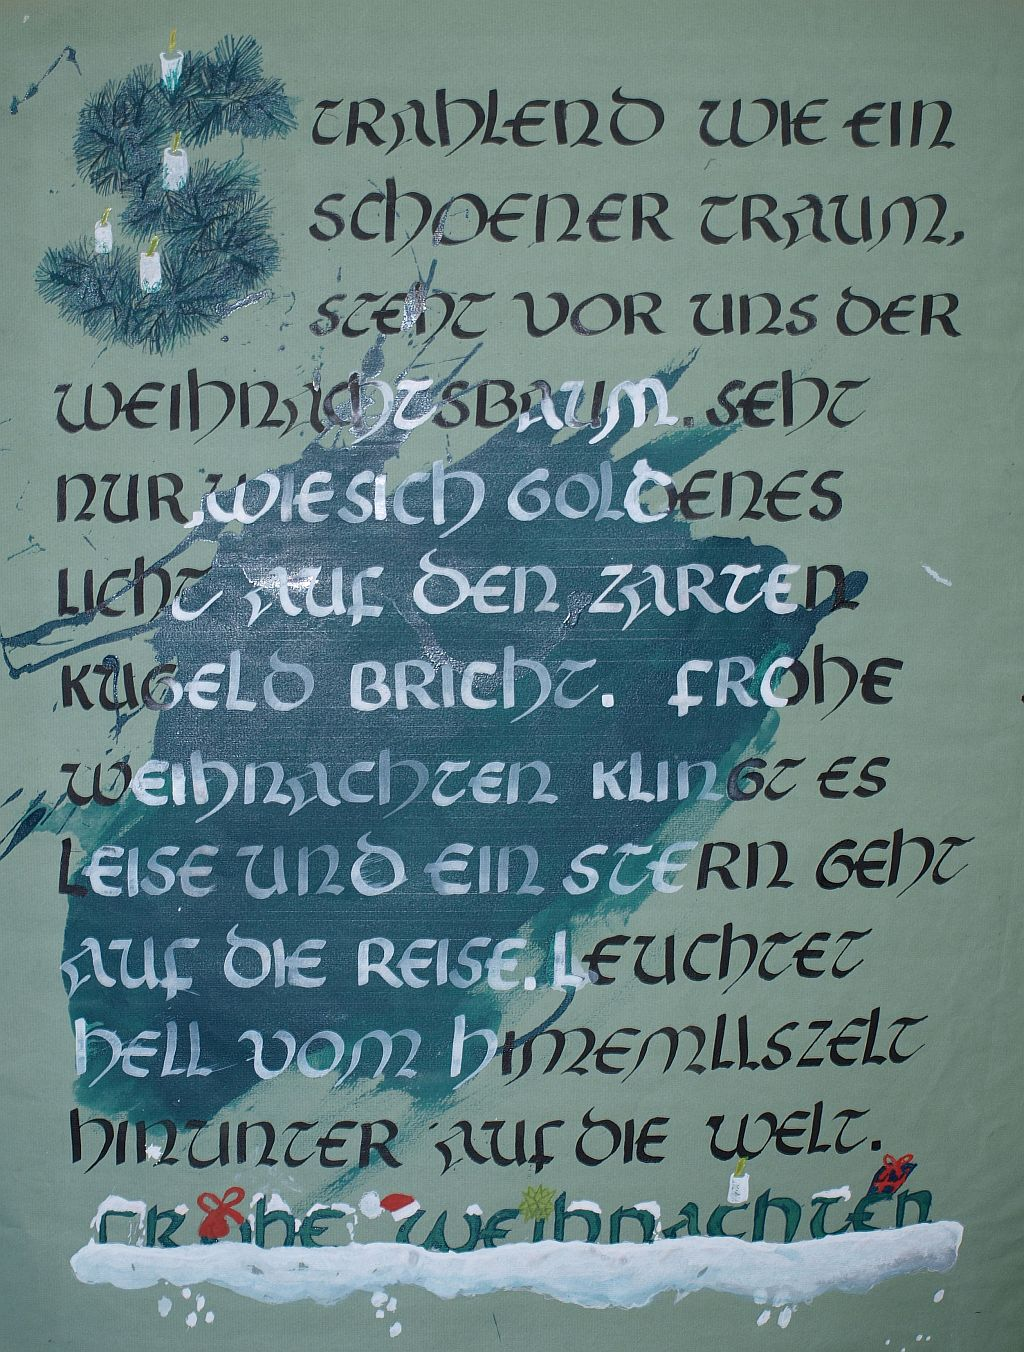 STRAHLEND WIE EIN
SCHOENER TRAUM,
STEHT VOR UNS DER
WEIHNACHTSBAUM. SEHT
NUR, WIE SICH GOLDENES
LICHT AUF DEN ZARTEN
KUGELD BRICHT. FROHE
WEIHNACHTEN KLINGT ES
LEISE UND EIN STERN GEHT
AUF DIE REISE. LEUCHTET
HELL VOM HIMEMLLSZELT
HINUNTER AUF DIE WELT.
FROHE WEIHNACHTEN